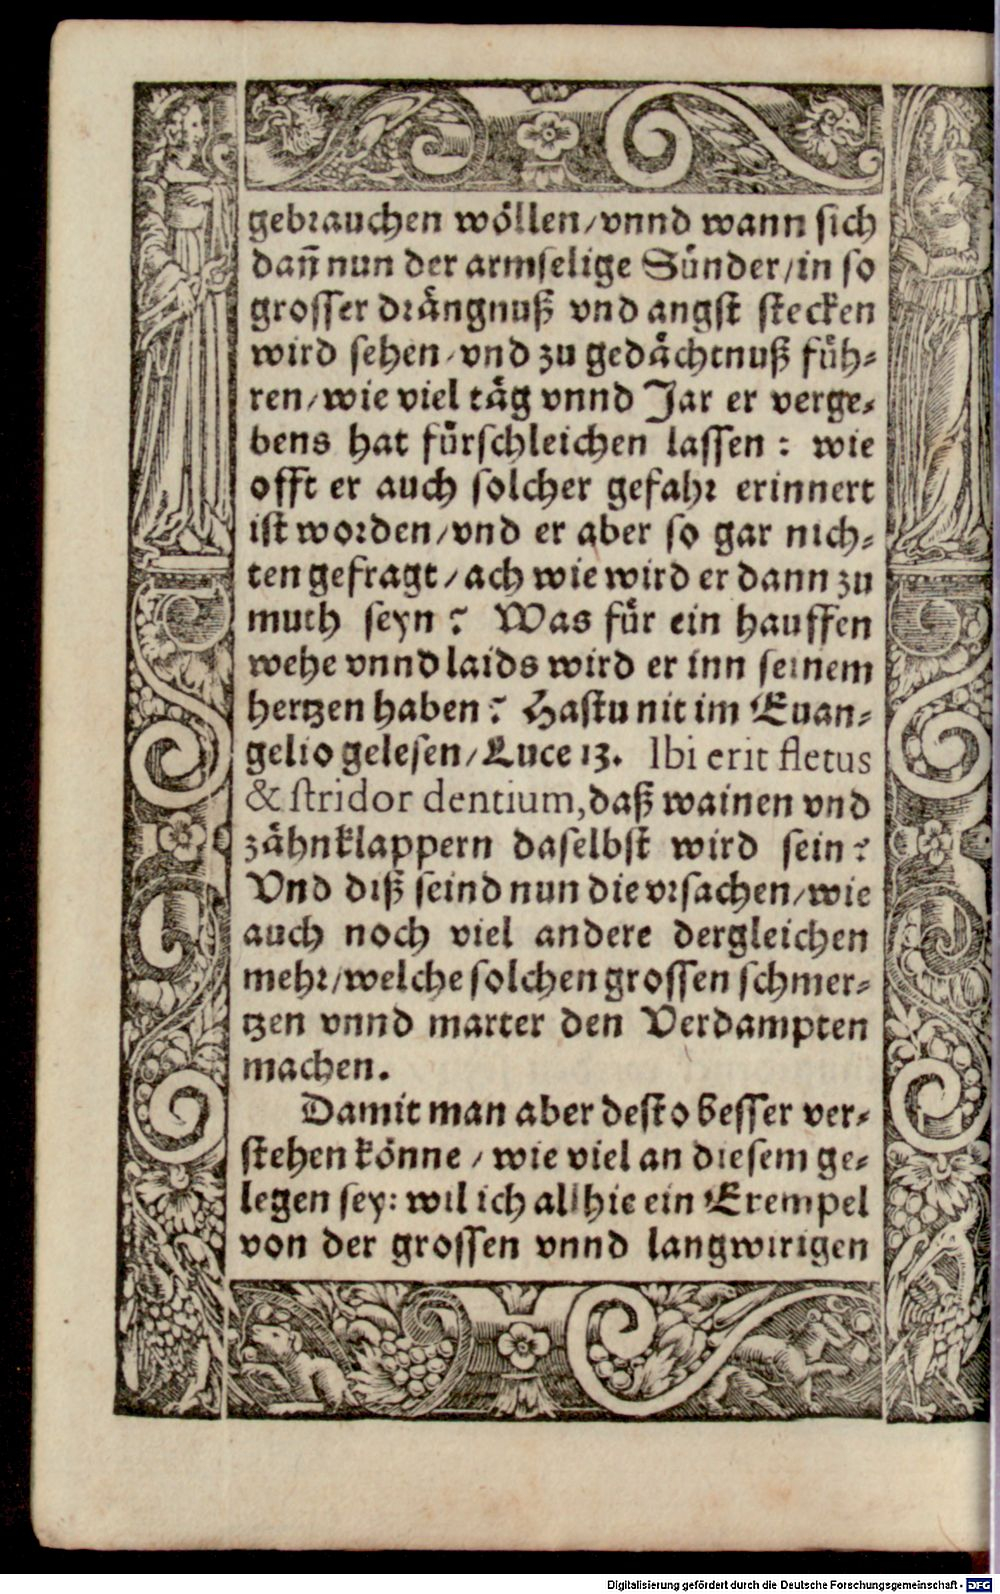 gebrauchen wöllen/vnnd wann sich
dañ nun der armselige Sünder/in so
grosser drängnuß vnd angst stecken
wird sehen/vnd zu gedächtnuß füh-
ren/wie viel täg vnnd Jar er verge-
bens hat fürschleichen lassen: wie
offt er auch solcher gefahr erinnert
ist worden/vnd er aber so gar nich-
ten gefragt/ach wie wird er dann zu
muth seyn? Was für ein hauffen
wehe vnnd laids wird er inn seinem
hertzen haben? Hastu nit im Euan-
gelio gelesen/Luce 13. Ibi erit fletus
& stridor dentium, daß wainen vnd
zähnklappern daselbst wird sein?
Vnd diß seind nun die vrsachen/wie
auch noch viel andere dergleichen
mehr/welche solchen grossen schmer-
tzen vnnd marter den Verdampten
machen.
Damit man aber desto besser ver-
stehen könne/wie viel an diesem ge-
legen sey: wil ich allhie ein Exempel
von der grossen vnnd langwirigen
Digitalisierung gefördert durch die Deutsche Forschungsgemeinschaft - DFG